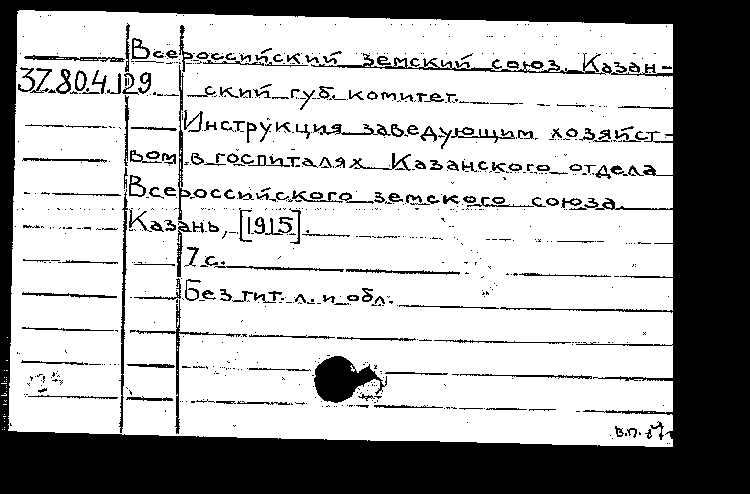 Всероссийский земский союз. Казан-
37.80.4.129. ский губ. комитет.
Инструкция заведующим хозяйст-
вом в госпиталях Казанского отдела
Всероссийского земского союза.
Казань, [1915].
7 с.
Без тит. л. и обл.
В.П.